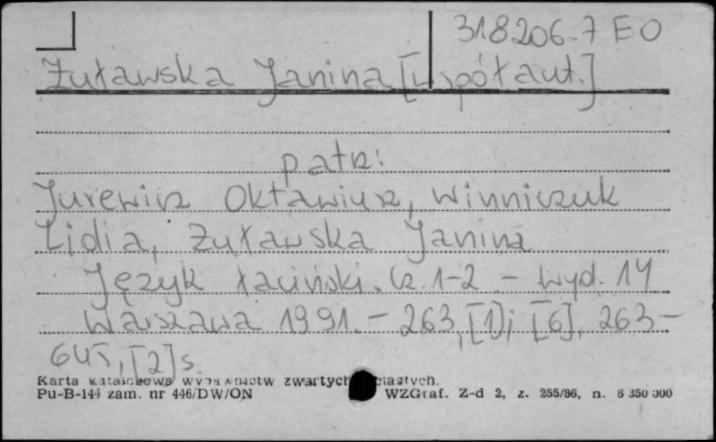 318206-7 EO
Żuławska Janina [współaut.]
patrz:
Jurewicz Oktawiusz, Winniczuk
Lidia, Żuławska Janina
Język łaciński. Cz. 1-2 - Wyd. 14
Warszawa 1991. - 263, [1]; [6], 263-
645, [2] s.
Karta katalogowa wydawnictw zwartych ciągłych.
Pu-B-144 zam. nr 446/DW/ON WZGraf. Z-d 2, z. 255/86, n. 6 350 000